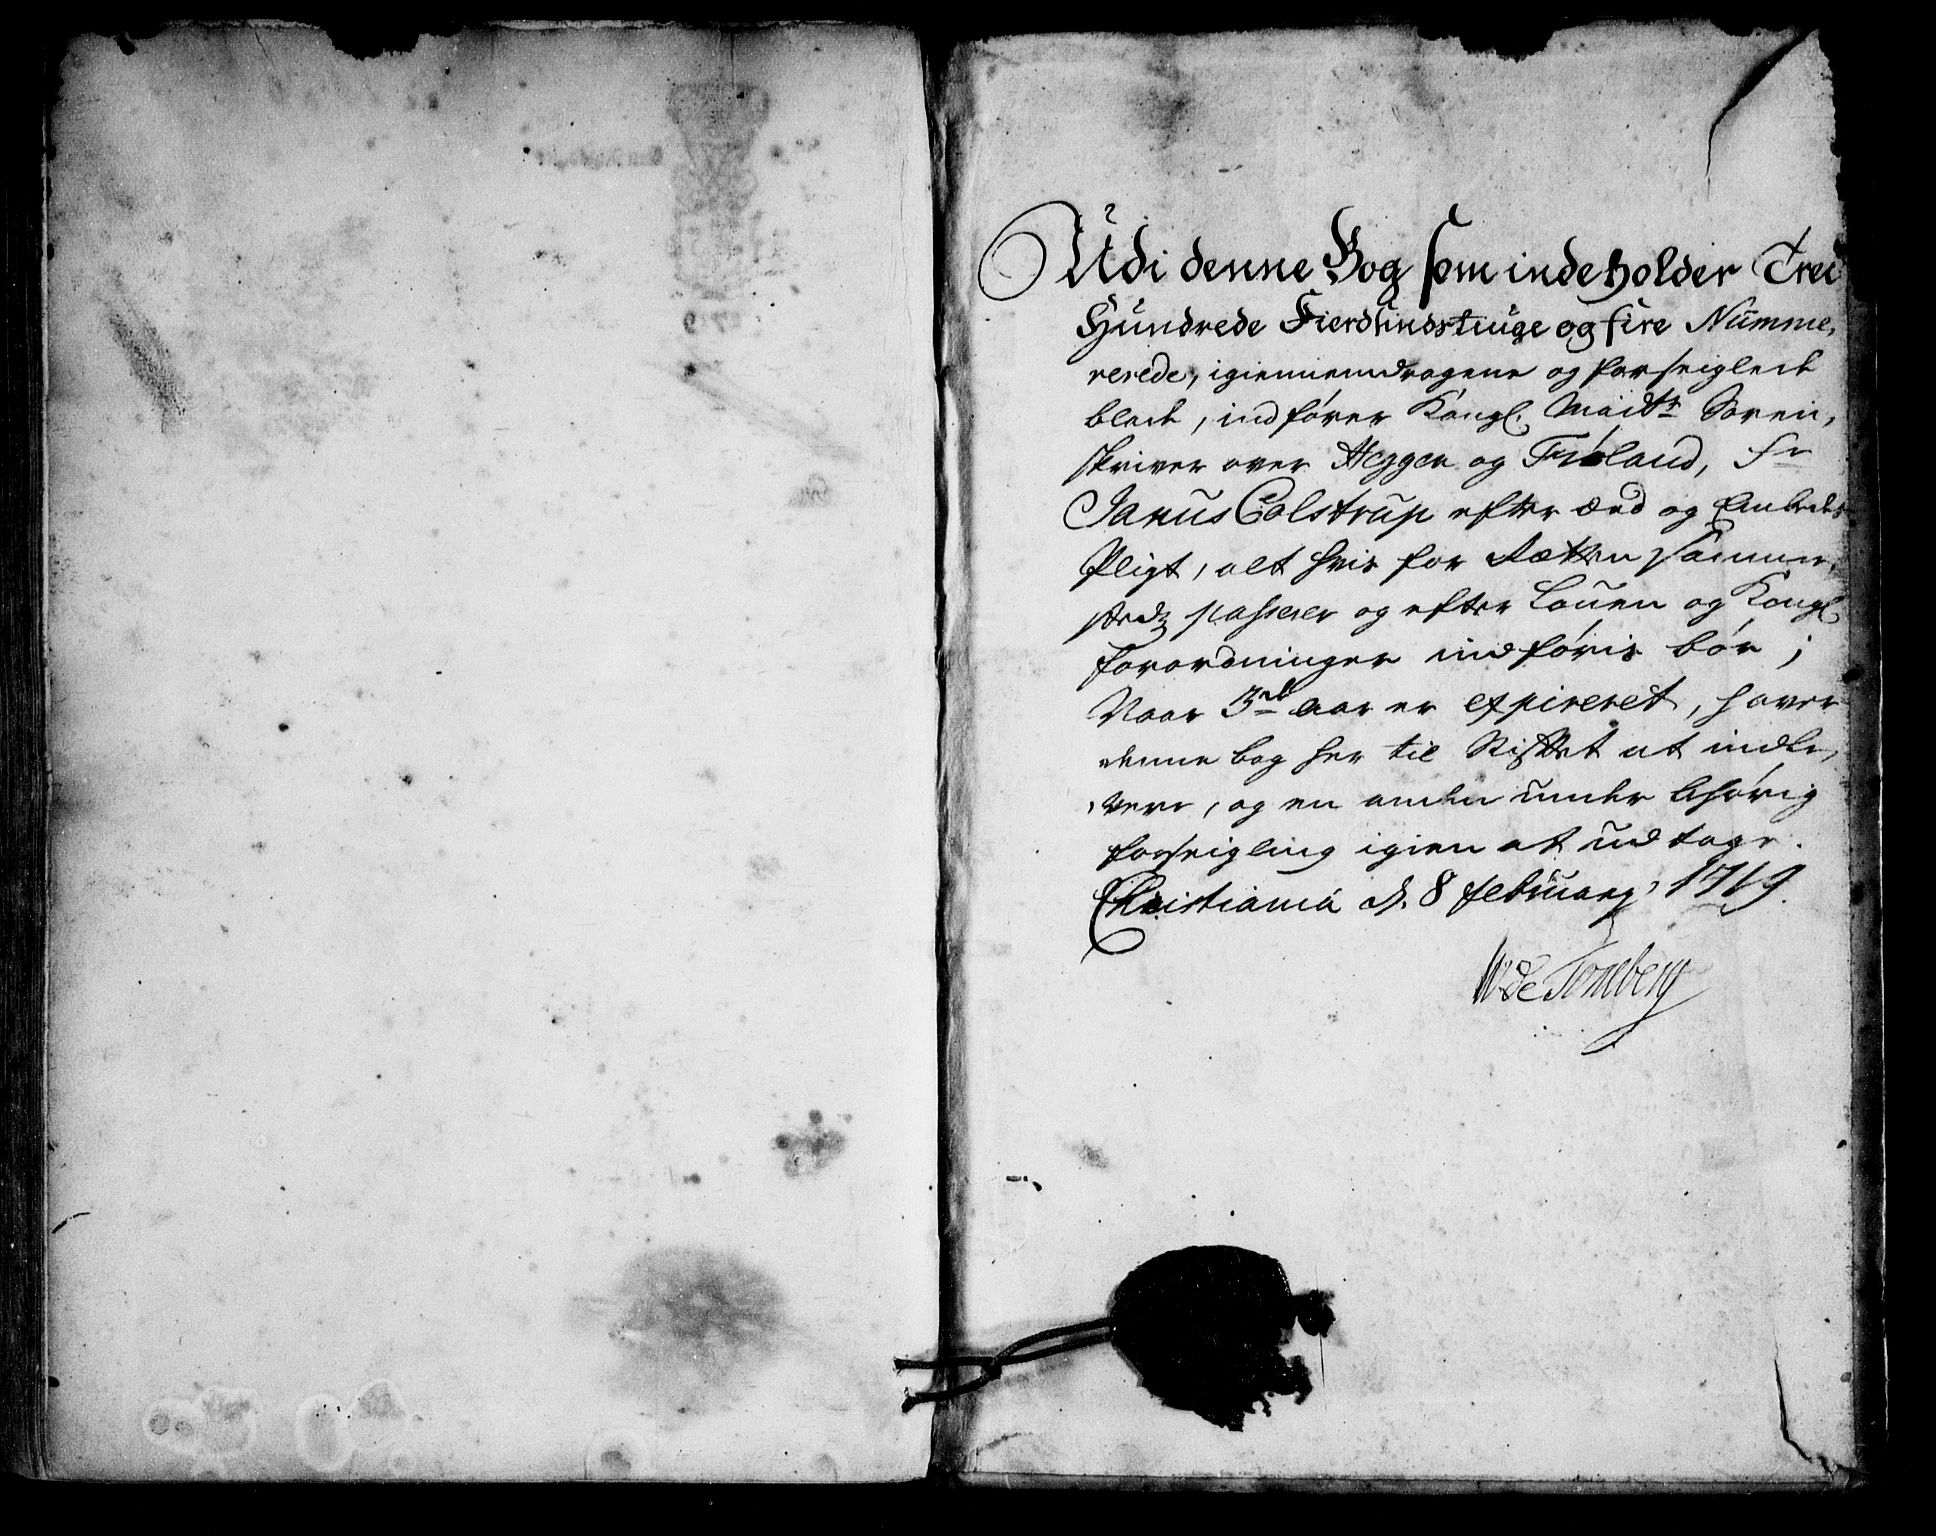 Udi denne Bog som indeholder Trei
Hundrede Fierdsindstiuge og fire Numme,
rerede, igiennemdragene og forseiglede
blade, indfører Kongl. Maidts Soren,
skriver over Hegger og Frøland, Sr
Janus Colstrup efter æed og Embeds
Pligt, alt hvis for Rætten sammen,
stedz passerer og efter Louen og Kongl
forordninger indføris bør;
Naar 3de aar er expireret, haver
denne bog her til Stiftet at indle,
vere, og en anden under behørig
forseigling igien at udtage.
Christiania d. 8 february 1719.
W de Tonsberg